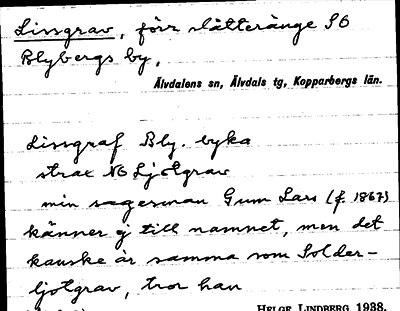 Lissgrav, förr slätteränge SO
Blybergs by,
Älvdalens sn, Älvdals tg, Kopparbergs län.
Lissgraf Bly. byka
strax NO Ljotgrav
min sagesman Gum Lars (f. 1867)
känner ej till namnet, men det
kanske är samma som Solder-
ljotgrav, tror han
HELGE LINDBERG 1938.